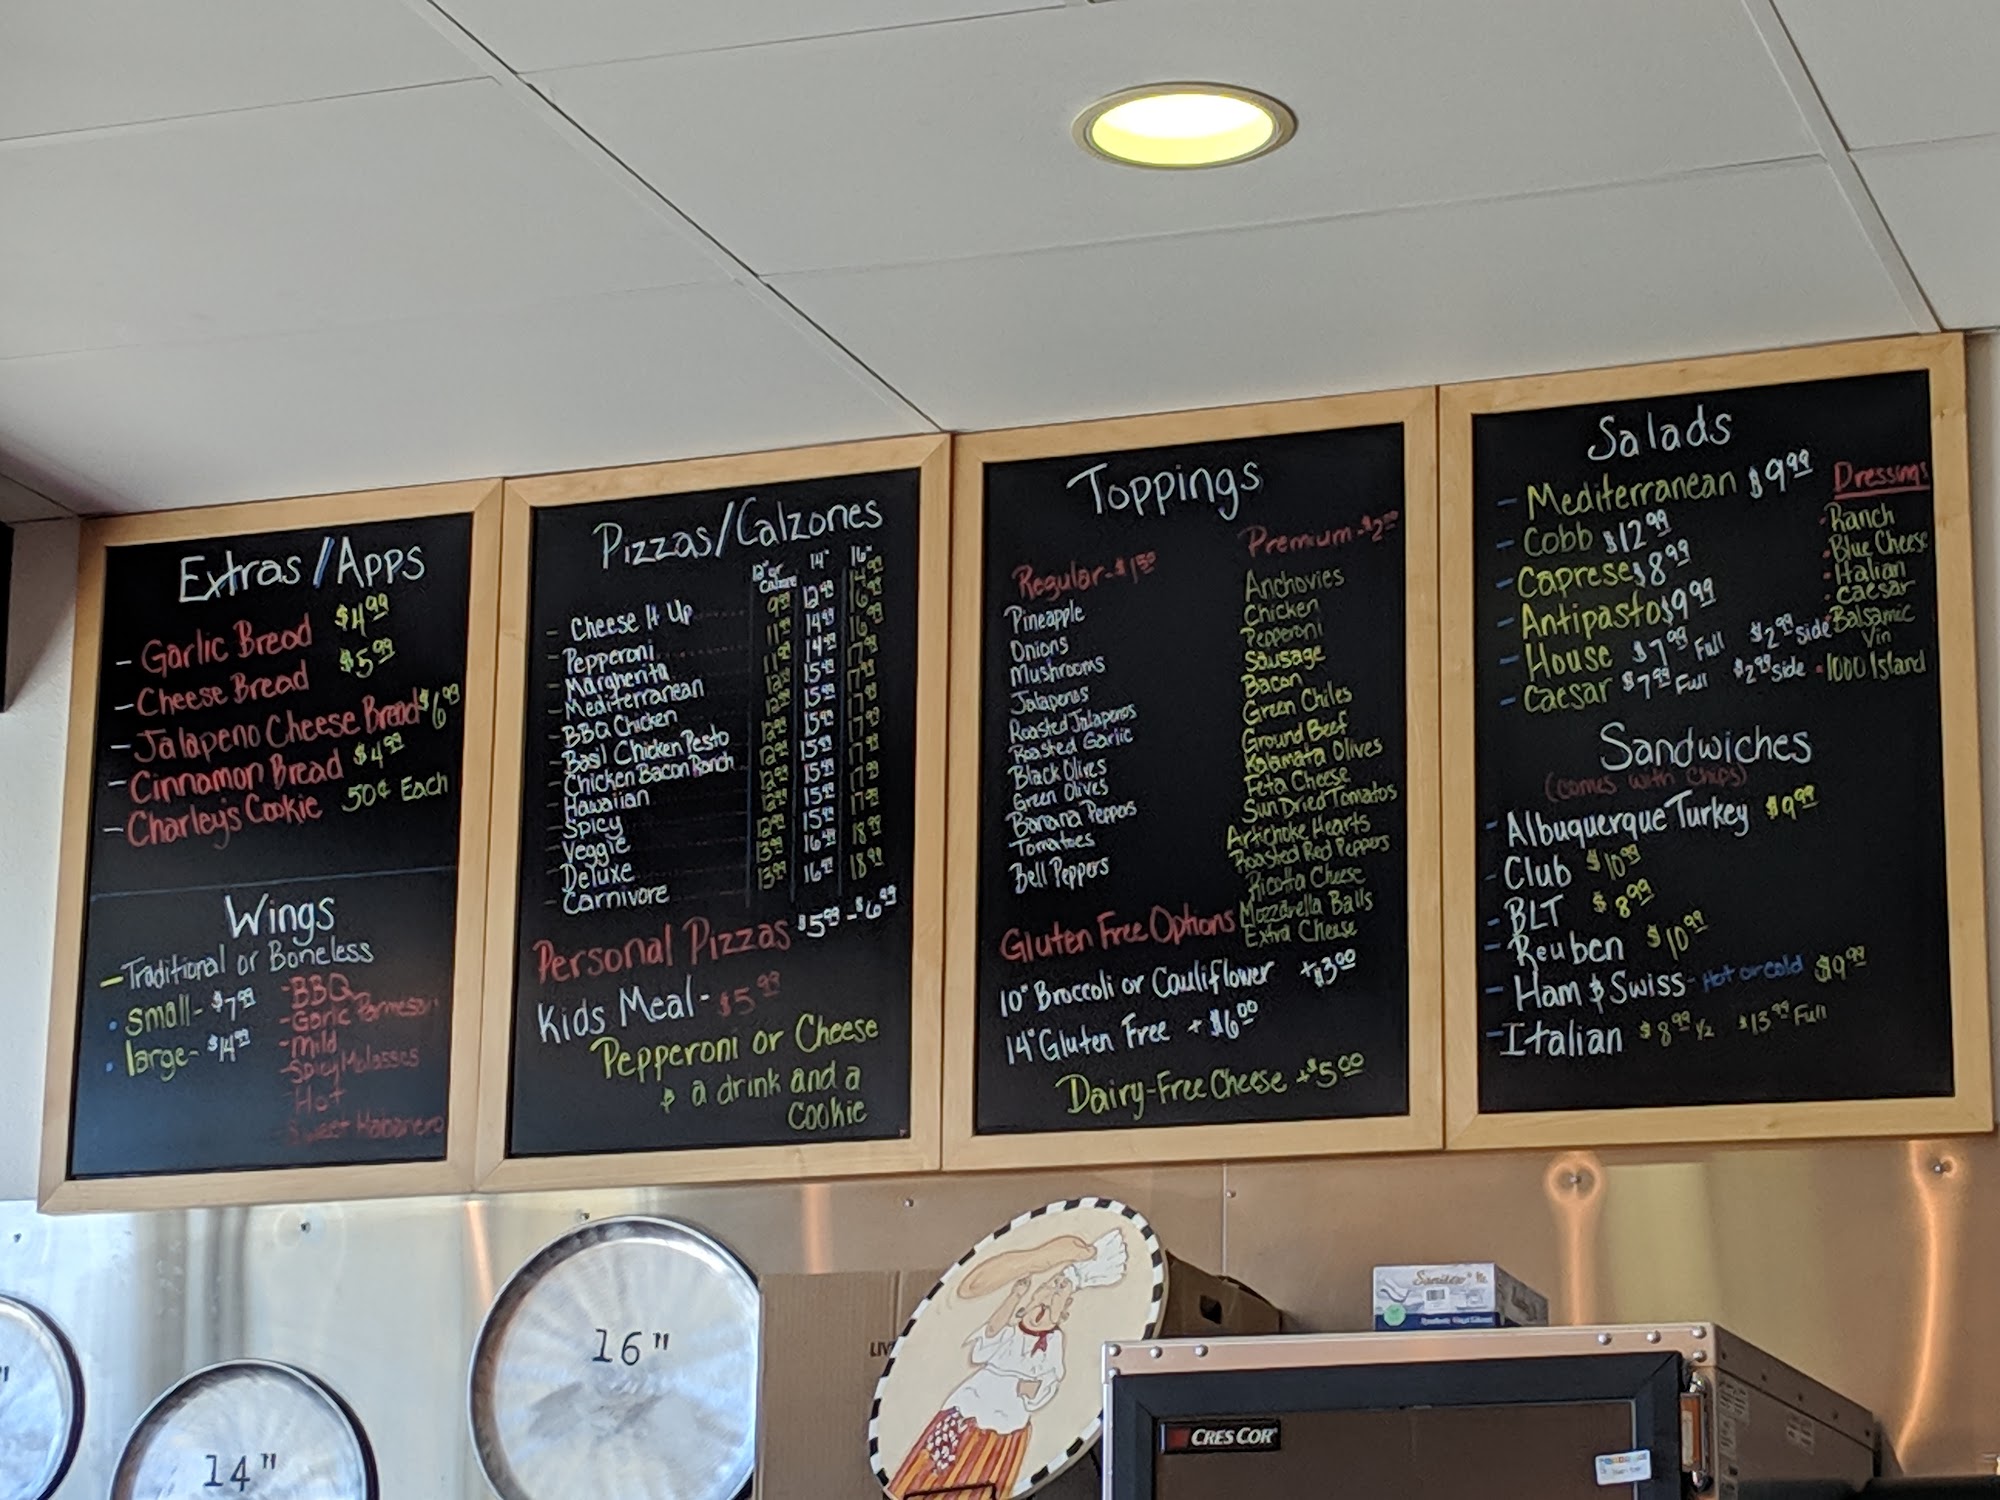 Extras/Apps
- Garlic Bread $4.99
- Cheese Bread $5.99
- Jalapeno Cheese Bread $6.99
- Cinnamon Bread $4.99
- Charley's Cookie 50¢ Each
Wings
- Traditional or Boneless
• small- $7.99
• large- $14.99
- BBQ
- Garlic Parmesan
- Mild
- Spicy Molasses
- Hot
- Sweet Habanero
Pizzas/Calzones
12" or Calzone 14" 16"
- Cheese It Up 9.99 12.99 14.99
- Pepperoni 11.99 14.99 16.99
- Margherita 11.99 14.99 16.99
- Mediterranean 12.99 15.99 17.99
- BBQ Chicken 12.99 15.99 17.99
- Basil Chicken Pesto 12.99 15.99 17.99
- Chicken Bacon Ranch 12.99 15.99 17.99
- Hawaiian 12.99 15.99 17.99
- Spicy 12.99 15.99 17.99
- Veggie 12.99 15.99 17.99
- Deluxe 13.99 16.99 18.99
- Carnivore 13.99 16.99 18.99
Personal Pizzas $5.99 - $6.99
Kids Meal - $5.99
Pepperoni or Cheese
& a drink and a
cookie
Toppings
Regular - $1.50
Pineapple
Onions
Mushrooms
Jalapenos
Roasted Jalapenos
Roasted Garlic
Black Olives
Green Olives
Banana Peppers
Tomatoes
Bell Peppers
Premium - $2.00
Anchovies
Chicken
Pepperoni
Sausage
Bacon
Green Chiles
Ground Beef
Kalamata Olives
Feta Cheese
Sun Dried Tomatos
Artichoke Hearts
Roasted Red Peppers
Ricotta Cheese
Mozzarella Balls
Extra Cheese
Gluten Free Options
10" Broccoli or Cauliflower +$3.00
14" Gluten Free + $6.00
Dairy-Free Cheese +$5.00
Salads
- Mediterranean $9.99
- Cobb $12.99
- Caprese $8.99
- Antipasto $9.99
- House $7.99 Full $2.99 side
- Caesar $7.99 Full $2.99 side
Dressings
• Ranch
• Blue Cheese
• Italian
• Caesar
• Balsamic
Vin
• 1000 Island
Sandwiches
(comes with chips)
- Albuquerque Turkey $9.99
- Club $10.99
- BLT $8.99
- Reuben $10.99
- Ham & Swiss - Hot or cold $9.99
- Italian $8.99 1/2 $13.99 Full
16"
14"
CRES COR